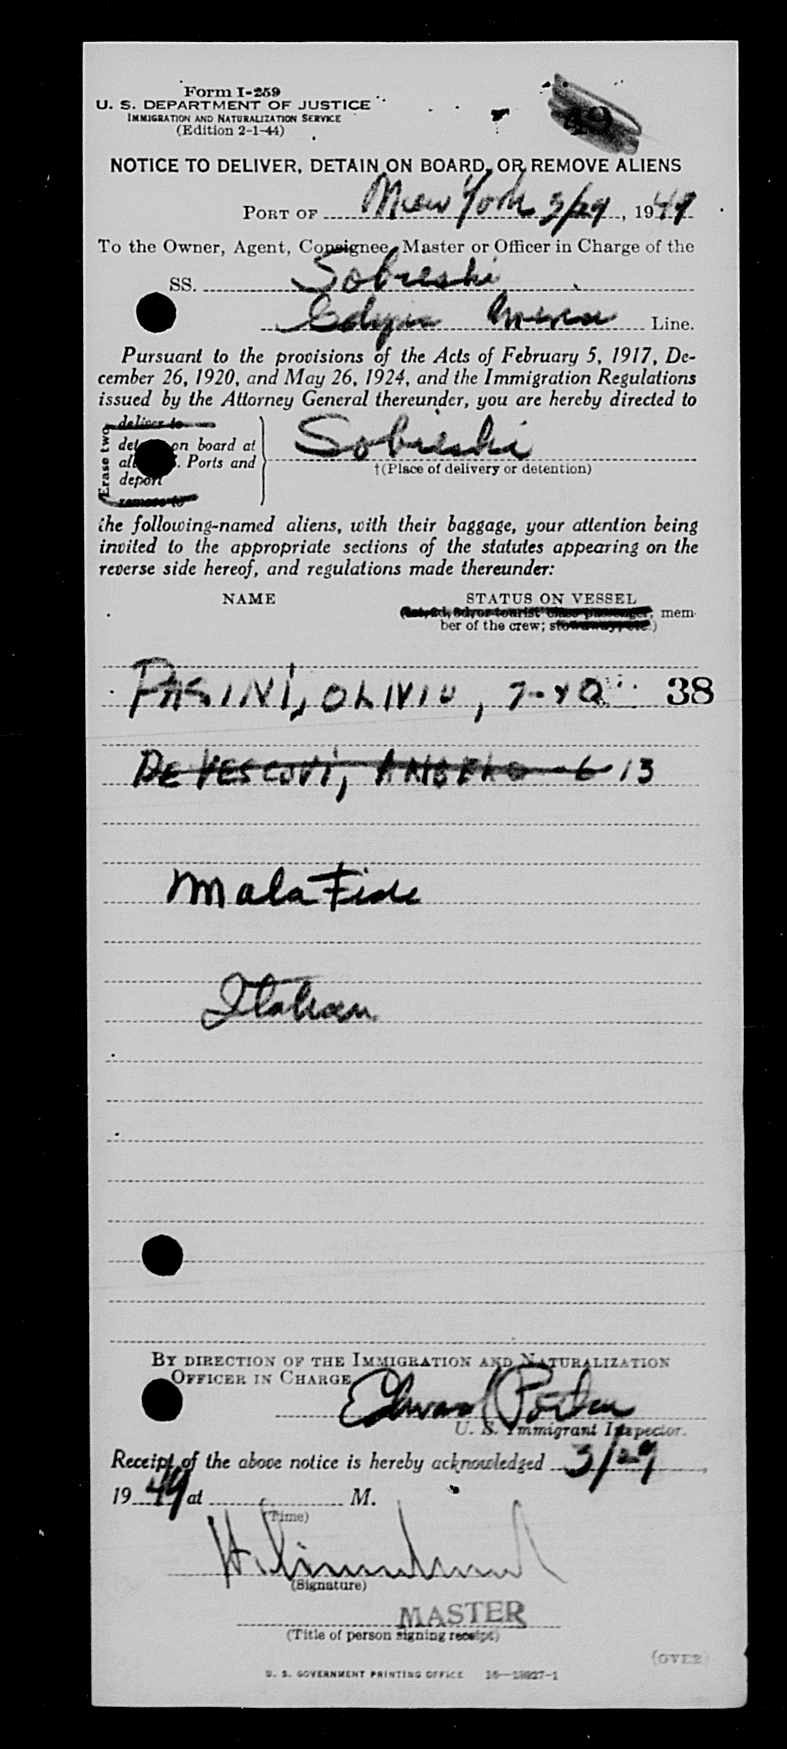 Form I-259
U. S. DEPARTMENT OF JUSTICE
IMMIGRATION AND NATURALIZATION SERVICE
(Edition 2-1-44)
NOTICE TO DELIVER, DETAIN ON BOARD, OR REMOVE ALIENS
PORT OF New York 3/29, 1949
To the Owner, Agent, Consignee, Master or Officer in Charge of the
SS. Sobieski
Line.
Pursuant to the provisions of the Acts of February 5, 1917, De-
cember 26, 1920, and May 26, 1924, and the Immigration Regulations
issued by the Attorney General thereunder, you are hereby directed to
Erase two
deliver to
on board at
Ports and
deport
remove to
Sobieski
†(Place of delivery or detention)
the following-named aliens, with their baggage, your attention being
invited to the appropriate sections of the statutes appearing on the
reverse side hereof, and regulations made thereunder:
NAME STATUS ON VESSEL
mem-
ber of the crew;
PASINI, OLIVIO, 7- 38
DE VESCOVI, 6 13
Mala Fide
Italian
BY DIRECTION OF THE IMMIGRATION AND NATURALIZATION
OFFICER IN CHARGE
Edward Porter
U. S. Immigrant Inspector.
Receipt of the above notice is hereby acknowledged 3/29,
1949 at M.
(Time)
(Signature)
MASTER
(Title of person signing receipt)
(OVER)
U. S. GOVERNMENT PRINTING OFFICE